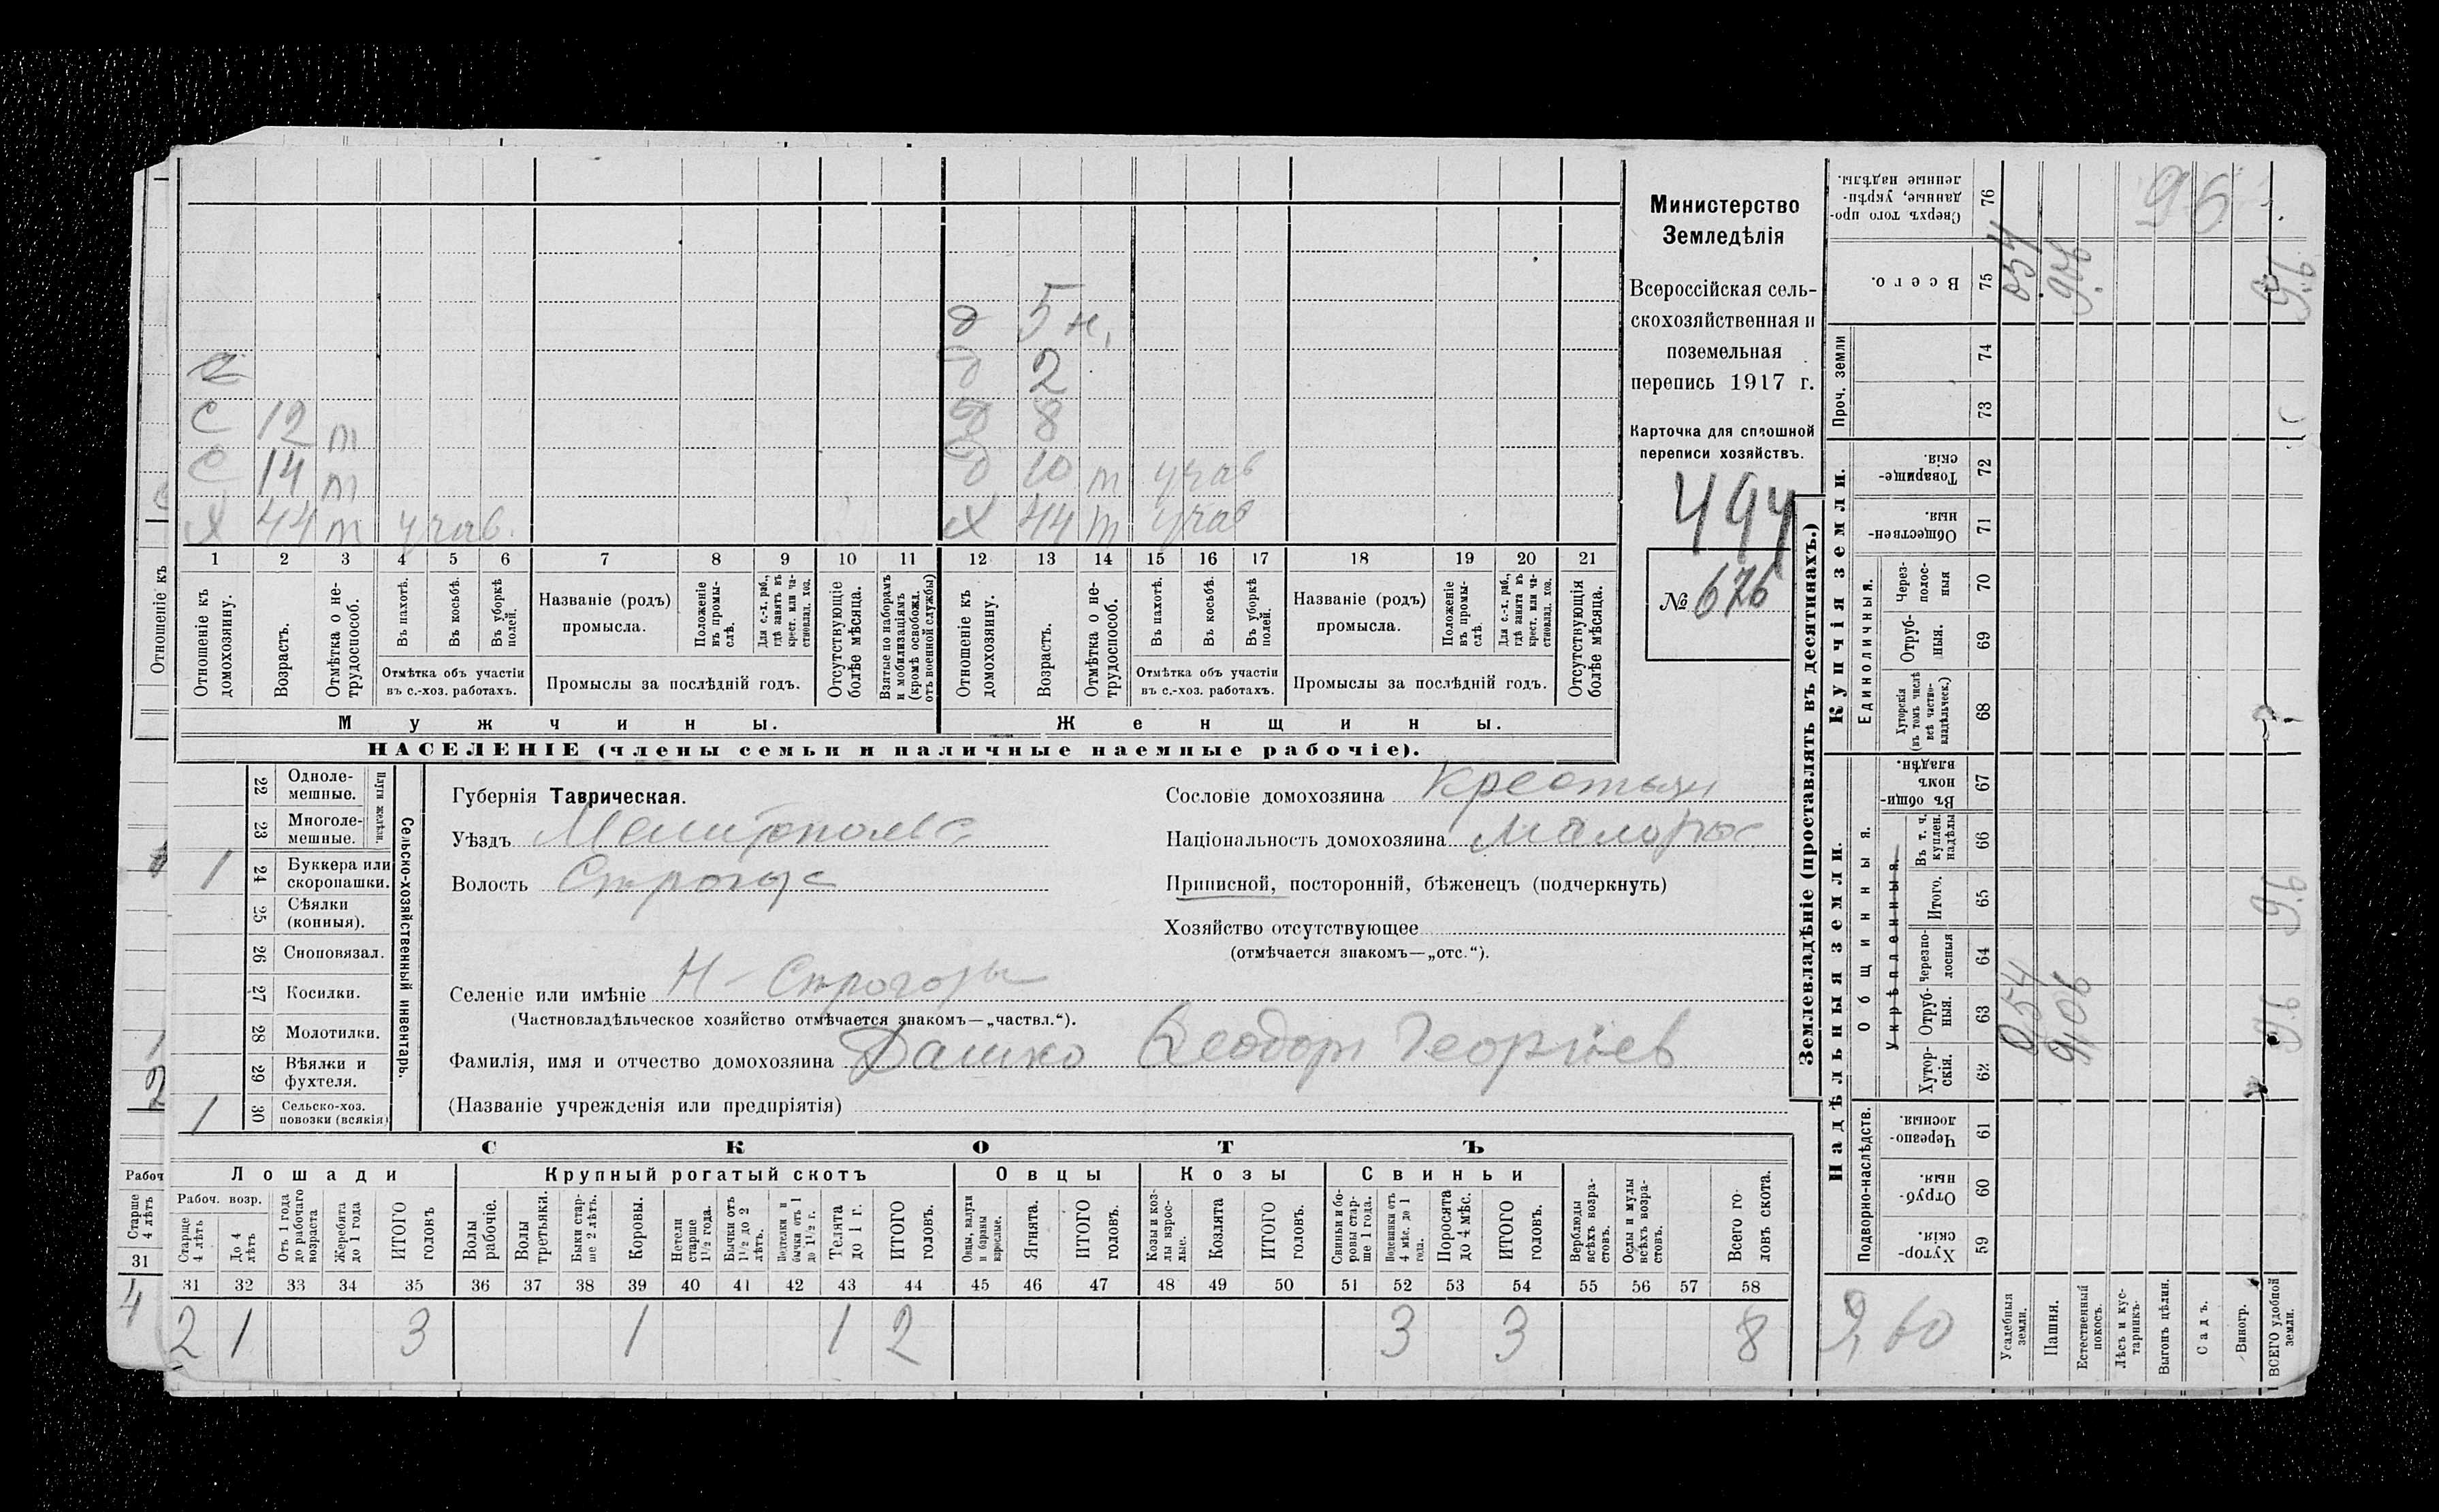 Министерство
Земледѣлія
Всероссійская сель-
скохозяйственная и
поземельная
перепись 1917 г.
Карточка для сплошной
переписи хозяйствъ.
494
№ 676
д 5 н,
д 2
С 12 т д 8
С 14 т д 10 т учав
Х 44 т учав. Х 44 т учав
1 2 3 4 5 6 7 8 9 10 11 12 13 14 15 16 17 18 19 20 21
Отношеніе къ домохозяину.
Возрастъ.
Отмѣтка о не-трудоспособ.
Въ пахотѣ.
Въ косьбѣ.
Въ уборкѣ полей.
Отмѣтка объ участіи въ с.-хоз. работахъ.
Названіе (родъ) промысла.
Положеніе въ промы-слѣ.
Для с.-х. раб., гдѣ занятъ въ крест. или ча-стновлад. хоз.
Промыслы за послѣдній годъ.
Отсутствующіе болѣе мѣсяца.
Взятые по наборамъ и мобилизаціямъ (кромѣ освобожд. отъ военной службы)
Отношеніе къ домохозяину.
Возрастъ.
Отмѣтка о не-трудоспособ.
Въ пахотѣ.
Въ косьбѣ.
Въ уборкѣ полей.
Отмѣтка объ участіи въ с.-хоз. работахъ.
Названіе (родъ) промысла.
Положеніе въ промы-слѣ.
Для с.-х. раб., гдѣ занята въ крест. или ча-стновлад. хоз.
Промыслы за послѣдній годъ.
Отсутствующія болѣе мѣсяца.
Мужчины. Женщины.
НАСЕЛЕНІЕ (члены семьи и наличные наемные рабочіе).
Сельско-хозяйственный инвентарь.
Плуги желѣзн.
22 Одноле-мешные.
23 Многоле-мешные.
1 24 Буккера или скоропашки.
25 Сѣялки (конныя).
26 Сноповязал.
27 Косилки.
28 Молотилки.
29 Вѣялки и фухтеля.
1 30 Сельско-хоз. повозки (всякія)
Губернія Таврическая.
Уѣздъ Мелитопольс
Волость Строгос
Селеніе или имѣніе Н-Строгозы
(Частновладѣльческое хозяйство отмѣчается знакомъ—„частвл.“).
Фамилія, имя и отчество домохозяина Дашко Ѳеодоръ Георгіев
(Названіе учрежденія или предпріятія)
Сословіе домохозяина Крестьян
Національность домохозяина Малорос
Приписной, посторонній, бѣженецъ (подчеркнуть)
Хозяйство отсутствующее
(отмѣчается знакомъ—„отс.“).
СКОТЪ
Лошади Крупный рогатый скотъ Овцы Козы Свиньи
Рабоч. возр.
Старше 4 лѣтъ
До 4 лѣтъ
Отъ 1 года до рабочаго возраста
Жеребята до 1 года
ИТОГО головъ
Волы рабочіе.
Волы третьяки.
Быки стар-ше 2 лѣтъ.
Коровы.
Нетели старше 1½ года.
Бычки отъ 1½ до 2 лѣтъ.
бычки отъ 1 до 1½ г.
Телята до 1 г.
ИТОГО головъ.
Овцы, валухи и бараны взрослые.
Ягнята.
ИТОГО головъ.
Козы и коз-лы взрос-лые.
Козлята
ИТОГО головъ.
Свиньи и бо-ровы стар-ше 1 года.
Подсвинки отъ 4 мѣс. до 1 года.
Поросята до 4 мѣс.
ИТОГО головъ.
Верблюды всѣхъ возра-стовъ.
Ослы и мулы всѣхъ возра-стовъ.
Всего го-ловъ скота.
31 32 33 34 35 36 37 38 39 40 41 42 43 44 45 46 47 48 49 50 51 52 53 54 55 56 57 58
2 1 3 1 1 2 3 3 8
Землевладѣніе (проставлять въ десятинахъ.)
Купчія земли.
Надѣльныя земли.
Сверхъ того про-данные, укрѣп-ленные надѣлы. 76 96
Всего. 75 054 906 9,6
Проч. земли 74
73
Товарище-скія. 72
Обществен-ныя. 71
Единоличныя.
Через-полос-ныя 70
Отруб-ныя. 69
Хуторскія (въ томъ числѣ всѣ частно-владѣльческ.) 68
Общинныя.
Укрѣпленныя.
Въ общи-номъ владѣн. 67
Въ т. ч. куплен. надѣлы 66
Итого. 65 9.6
Черезпо-лосныя 64
Отруб-ныя. 63 0,54 9,06 9.6
Хутор-скія. 62
Подворно-наслѣдств.
Черезпо-лосныя 61
Отруб-ныя. 60
Хутор-скія. 59
9,60
Усадебныя земли.
Пашня.
Естественный покосъ.
Лѣсъ и кус-тарникъ.
Выгонъ цѣлин.
Садъ.
Виногр.
ВСЕГО удобной земли.
Отношеніе къ
2
Рабоч
Старше 4 лѣтъ
31
4